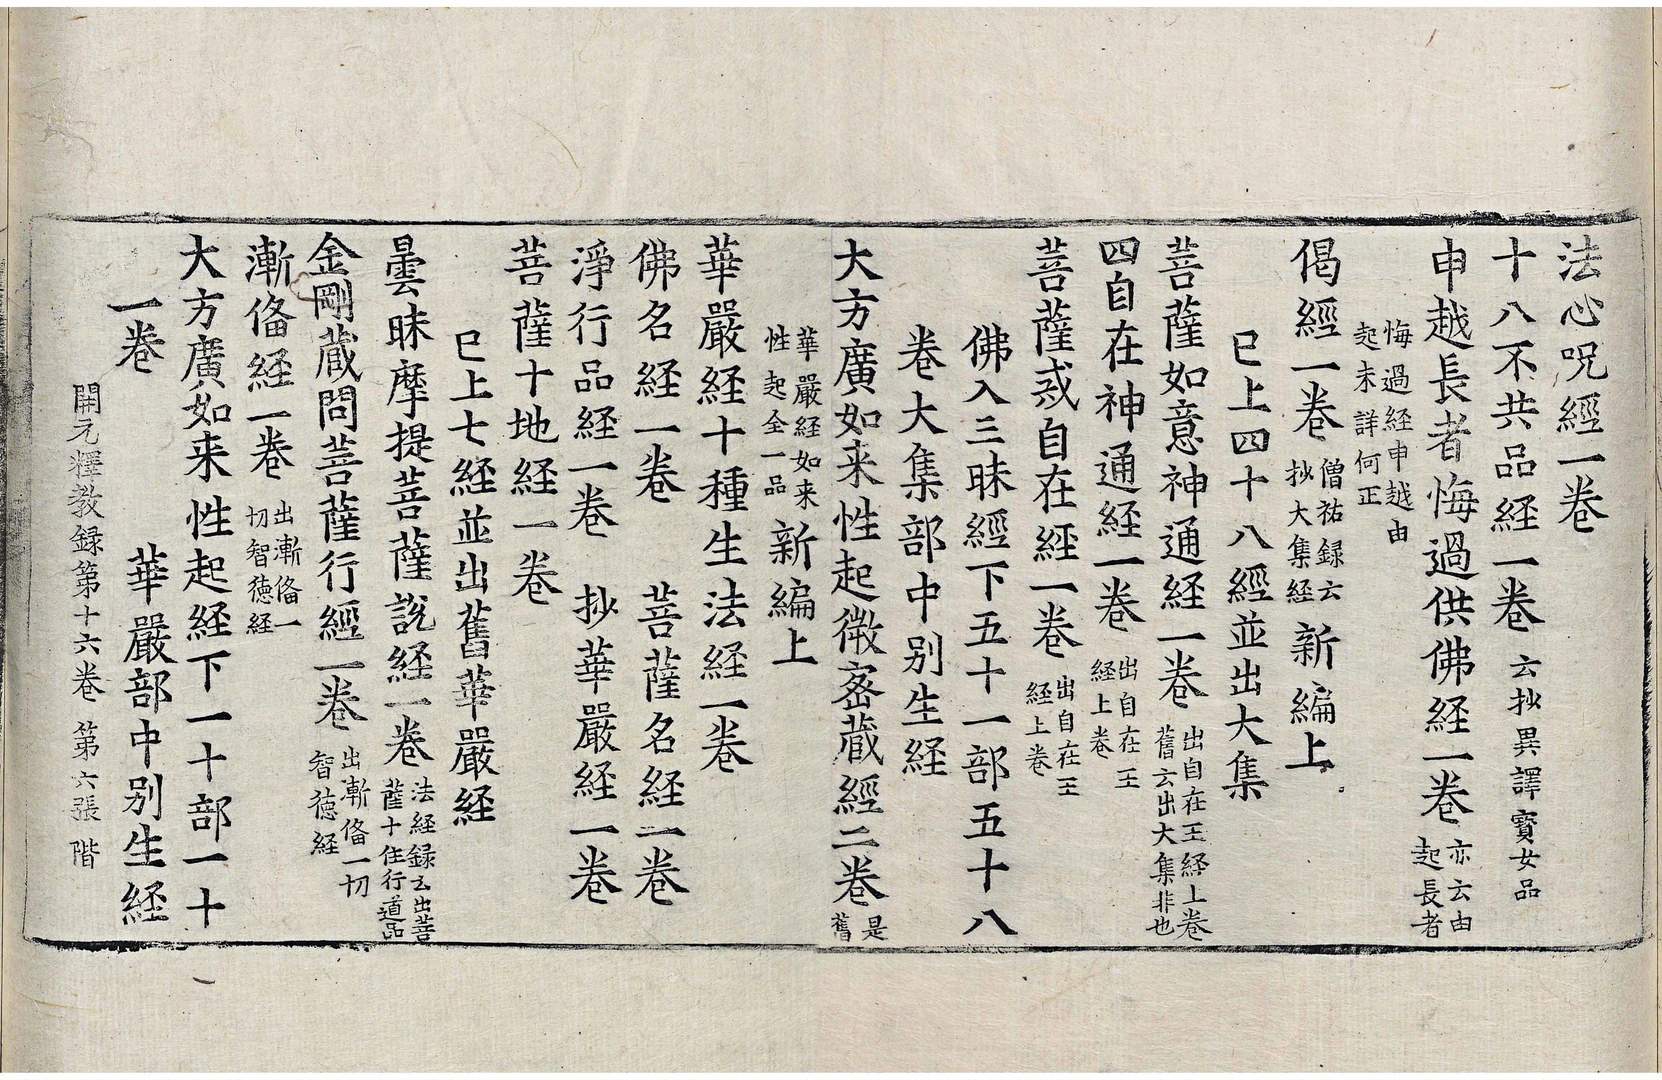 法心呪經一卷
十八不共品経一卷 云抄異譯寳女品
申越長者悔過供佛経一卷 亦云由起長者
悔過経申越由起未詳何正
偈經一卷 僧祐録云抄大集経 新編上
已上四十八經並出大集
菩薩如意神通経一卷 出自在王経上卷舊云出大集非也
四自在神通経一卷 出自在王経上卷
菩薩戒自在經一卷 出自在王経上卷
佛入三昧經下五十一部五十八
卷大集部中別生経
大方廣如来性起微宻蔵經二卷 是舊
華嚴経如来性起全一品 新編上
華嚴経十種生法経一卷
佛名経一卷 菩薩名経一卷
淨行品経一卷 抄華嚴経一卷
菩薩十地経一卷
已上七経並出舊華嚴経
曇昧摩提菩薩說経一卷 法経録云出菩薩十住行道品
金剛蔵問菩薩行經一卷 出漸俻一切智徳經
漸俻経一卷 出漸俻一切智徳経
大方廣如来性起経下一十部一十
一卷 華嚴部中別生経
開元釋教録第十六卷 第六張 階